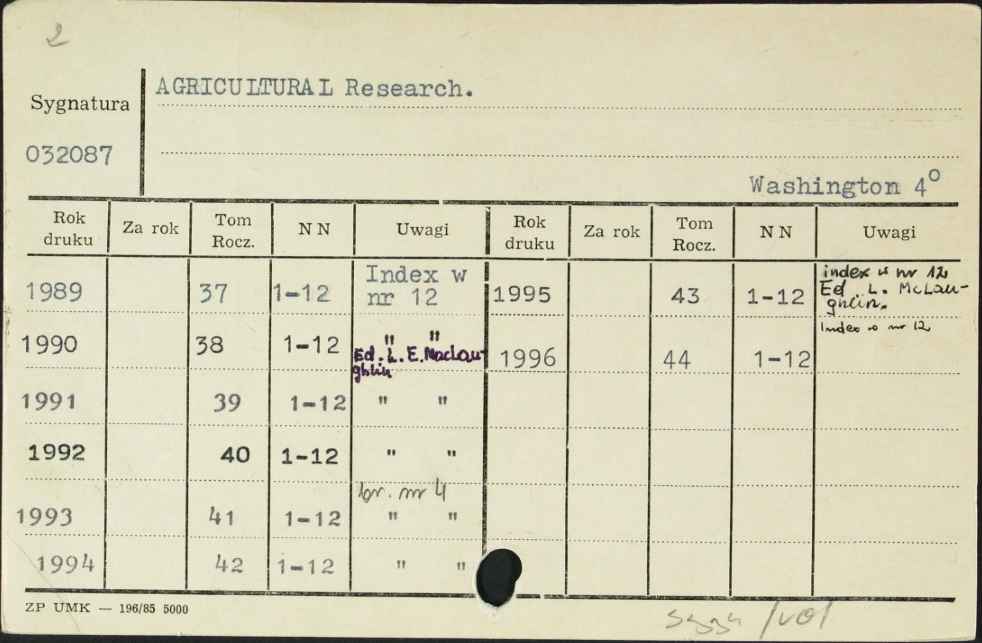 2
Sygnatura
AGRICULTURAL Research.
032087
Washington 4⁰
Rok druku Za rok Tom Rocz. N N Uwagi Rok druku Za rok Tom Rocz. N N Uwagi
1989 37 1-12 Index w nr 12 1995 43 1-12 index w nr 12 Ed L. McLau-ghlin.
1990 38 1-12 " " Ed. L. E. MacLau-ghlin 1996 44 1-12 Index w nr 12
1991 39 1-12 " "
1992 40 1-12 " "
1993 41 1-12 br. nr 4 " "
1994 42 1-12 " "
ZP UMK — 196/85 5000